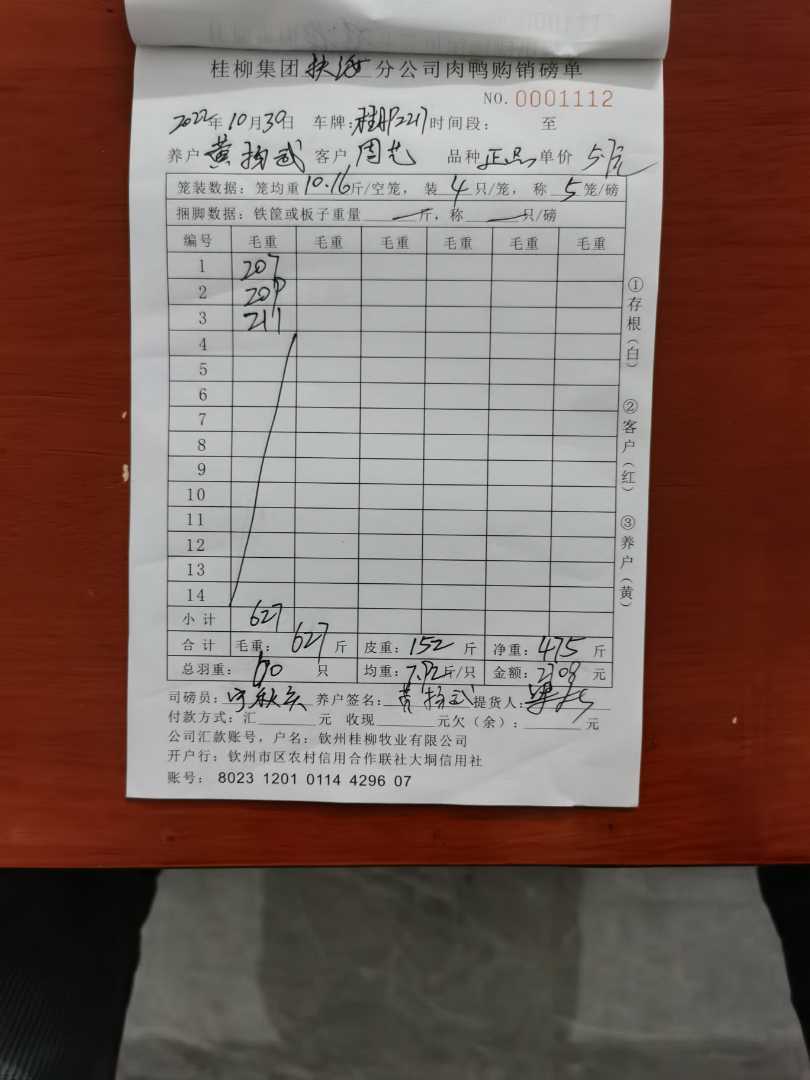 桂柳集团 分公司肉鸭购销磅单
NO. 0001112
2022年10月30日 车牌: 时间段: 至
养户 黄扬武 客户 周 品种 正品 单价 5.7元
笼装数据: 笼均重 10.16 斤/空笼, 装 4 只/笼, 称 5 笼/磅
捆脚数据: 铁筐或板子重量 — 斤, 称 — 只/磅
编号 毛重 毛重 毛重 毛重 毛重 毛重
1 207
2 209
3 211
4
5
6
7
8
9
10
11
12
13
14
小计 627
合计 毛重: 627 斤 皮重: 152 斤 净重: 475 斤
总羽重: 60 只 均重: 7.92 斤/只 金额: 2708 元
司磅员: 养户签名: 黄扬武 提货人:
付款方式: 汇 元 收现 元欠(余): 元
公司汇款账号, 户名: 钦州桂柳牧业有限公司
开户行: 钦州市区农村信用合作联社大垌信用社
账号: 8023 1201 0114 4296 07
①存根(白) ②客户(红) ③养户(黄)